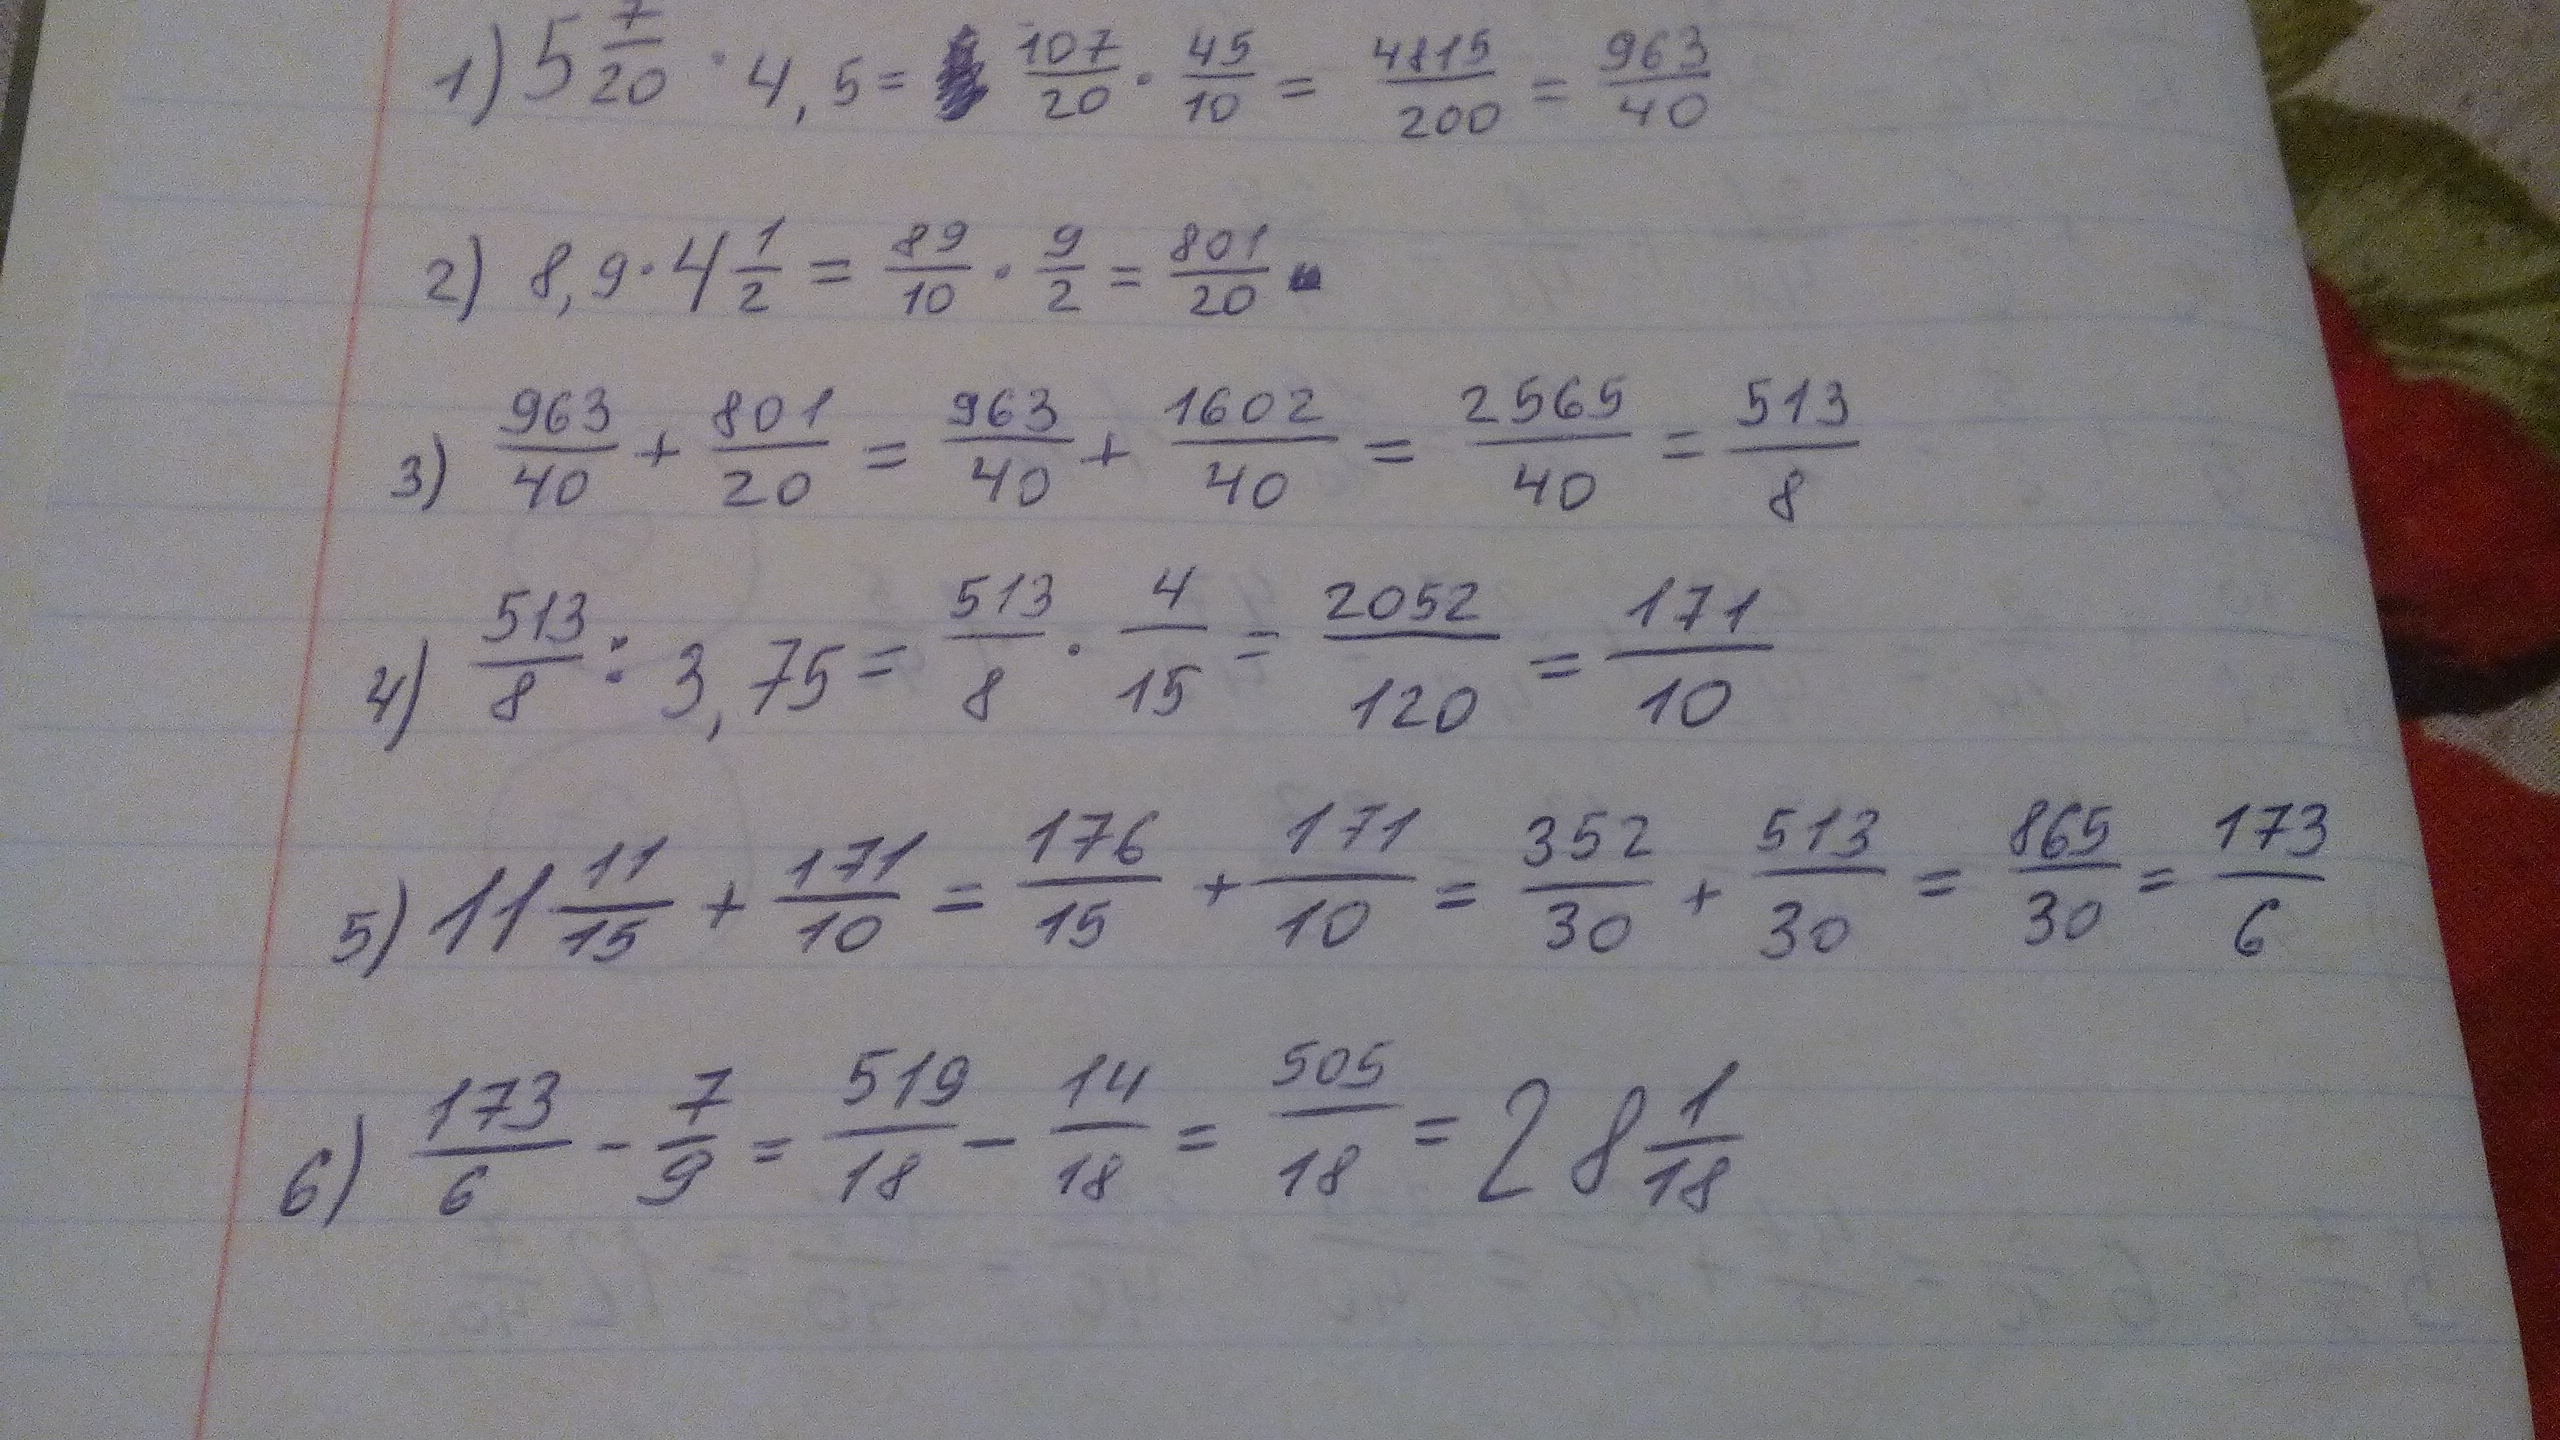 1) 5 7/20 · 4,5 = 107/20 · 45/10 = 4815/200 = 963/40
2) 8,9 · 4 1/2 = 89/10 · 9/2 = 801/20
3) 963/40 + 801/20 = 963/40 + 1602/40 = 2565/40 = 513/8
4) 513/8 : 3,75 = 513/8 · 4/15 = 2052/120 = 171/10
5) 11 11/15 + 171/10 = 176/15 + 171/10 = 352/30 + 513/30 = 865/30 = 173/6
6) 173/6 - 7/9 = 519/18 - 14/18 = 505/18 = 28 1/18